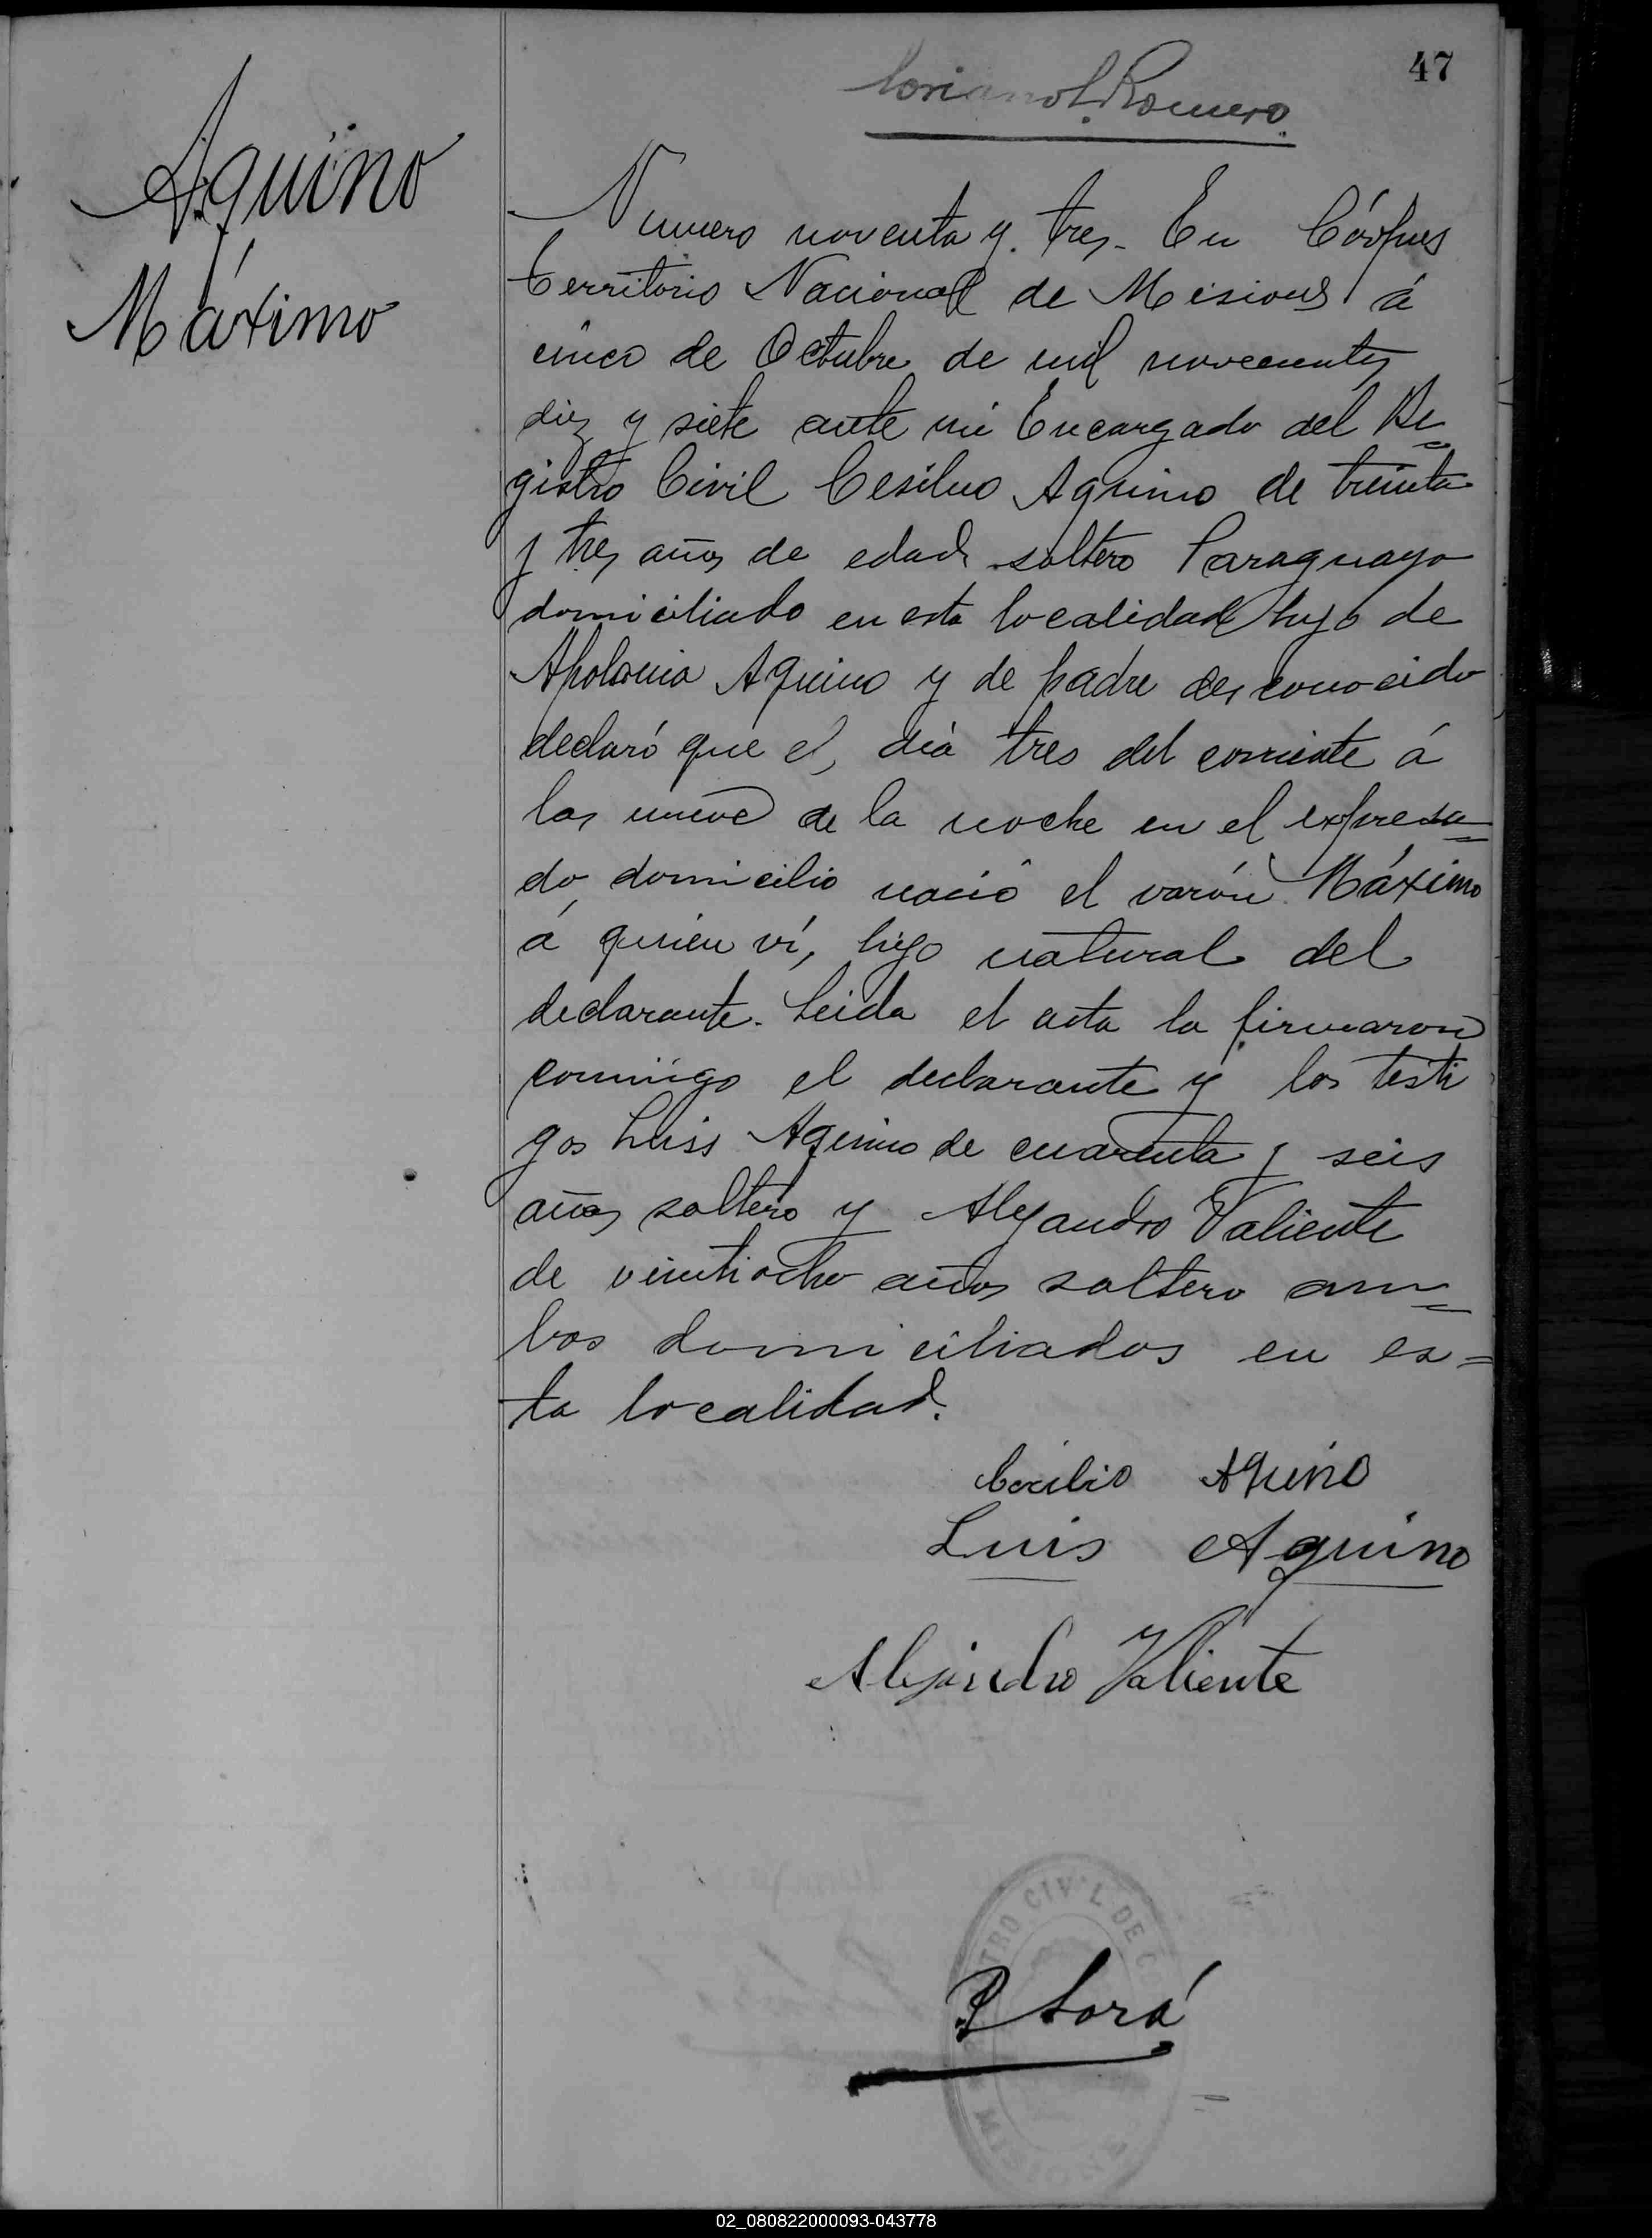 47
L. Romero
Aquino
Máximo
Numero noventa y tres. En Córpus
Territorio Nacional de Misiones á
cinco de Octubre de mil novecientos
diez y siete ante mi Encargado del Re=
gistro Civil Cesilio Aquino de treinta
y tres años de edad soltero Paraguayo
domiciliado en esta localidad hijo de
Apolonia Aquino y de padre desconocido
declaró que el, dia tres del corriente á
las nueve de la noche en el expresa=
do domicilio nació el varón Máximo
á quien ví, hijo natural del
declarante. Leida el acta la firmaron
conmigo el declarante y los testi
gos Luis Aquino de cuarenta y seis
años soltero y Alejandro Valiente
de veintiocho años soltero am=
bos domiciliados en es=
ta localidad.
Cecilio Aquino
Luis Aquino
Alejandro Valiente
TRO CIVIL DE
02_080822000093-043778